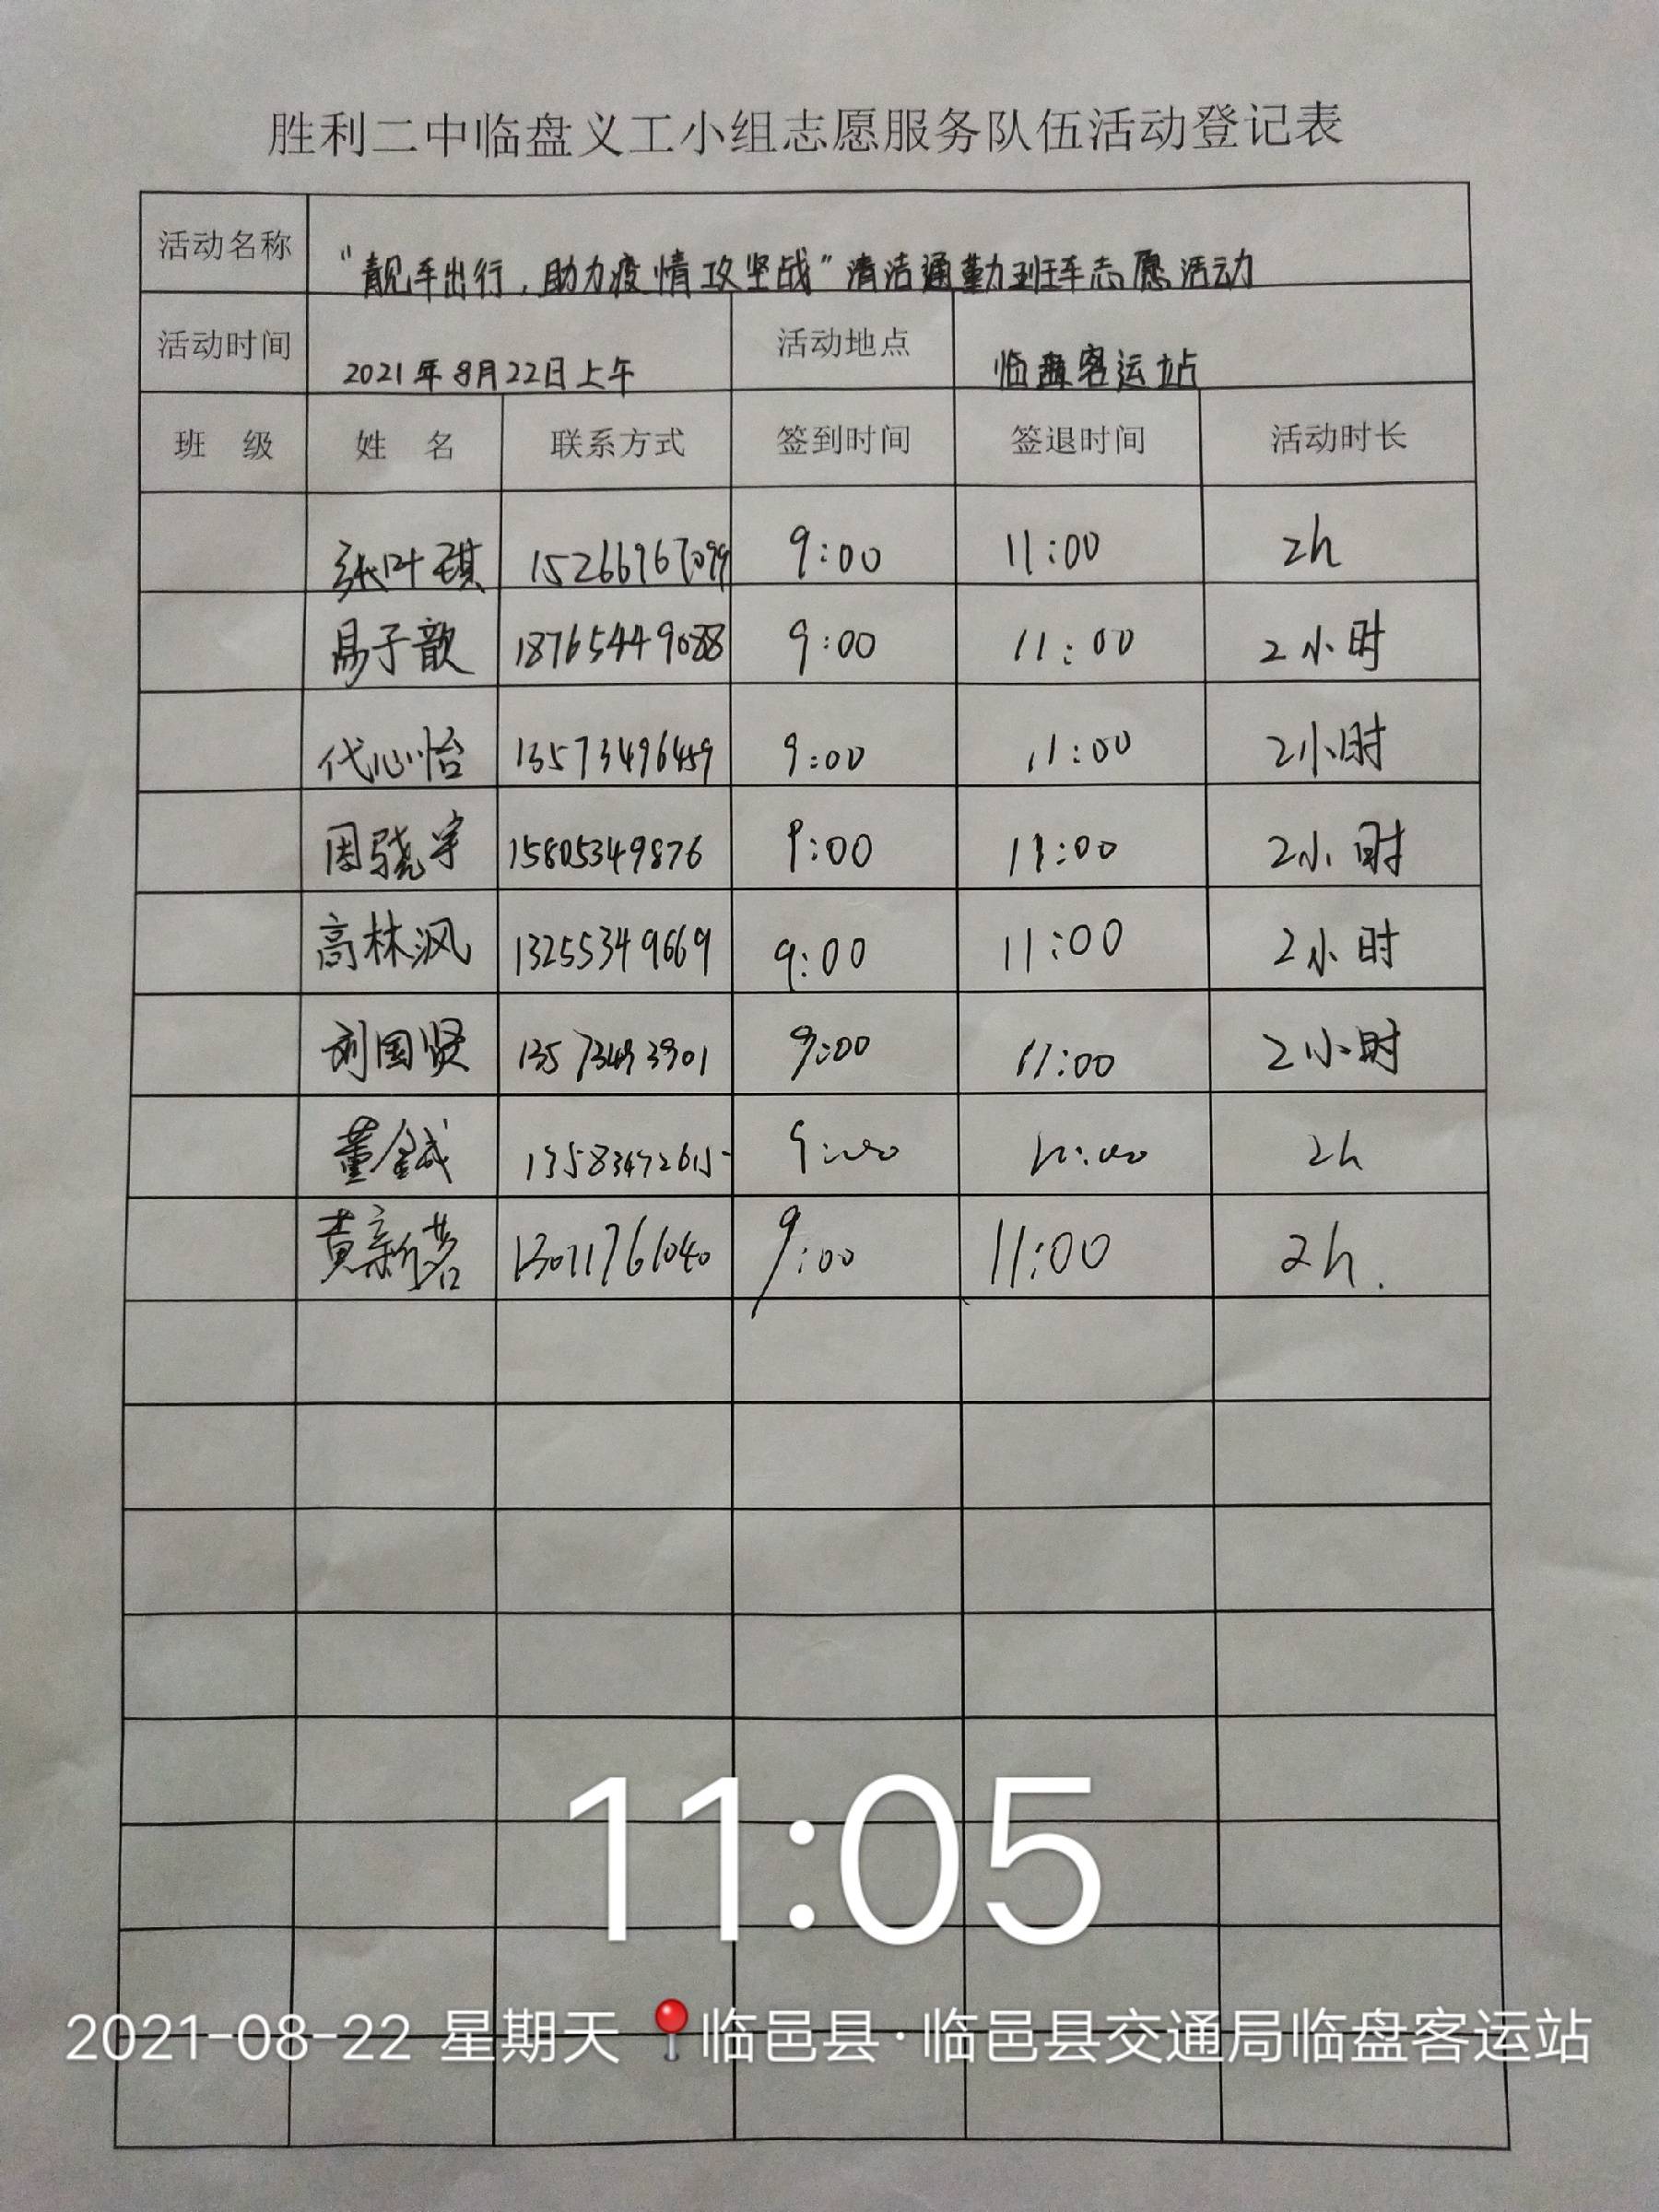 胜利二中临盘义工小组志愿服务队伍活动登记表
活动名称 “靓车出行,助力疫情攻坚战”清洁通勤班车志愿活动
活动时间 2021年8月22日上午 活动地点 临盘客运站
班 级 姓 名 联系方式 签到时间 签退时间 活动时长
张叶琪 15266967099 9:00 11:00 2h
易子歆 18765449088 9:00 11:00 2小时
代心怡 13573496459 9:00 11:00 2小时
周骁宇 15805349876 9:00 11:00 2小时
高林沨 13255349669 9:00 11:00 2小时
刘国贤 13573493901 9:00 11:00 2小时
董金诚 9:00 11:00 2h
黄新茗 13011761040 9:00 11:00 2h.
11:05
2021-08-22 星期天 临邑县·临邑县交通局临盘客运站